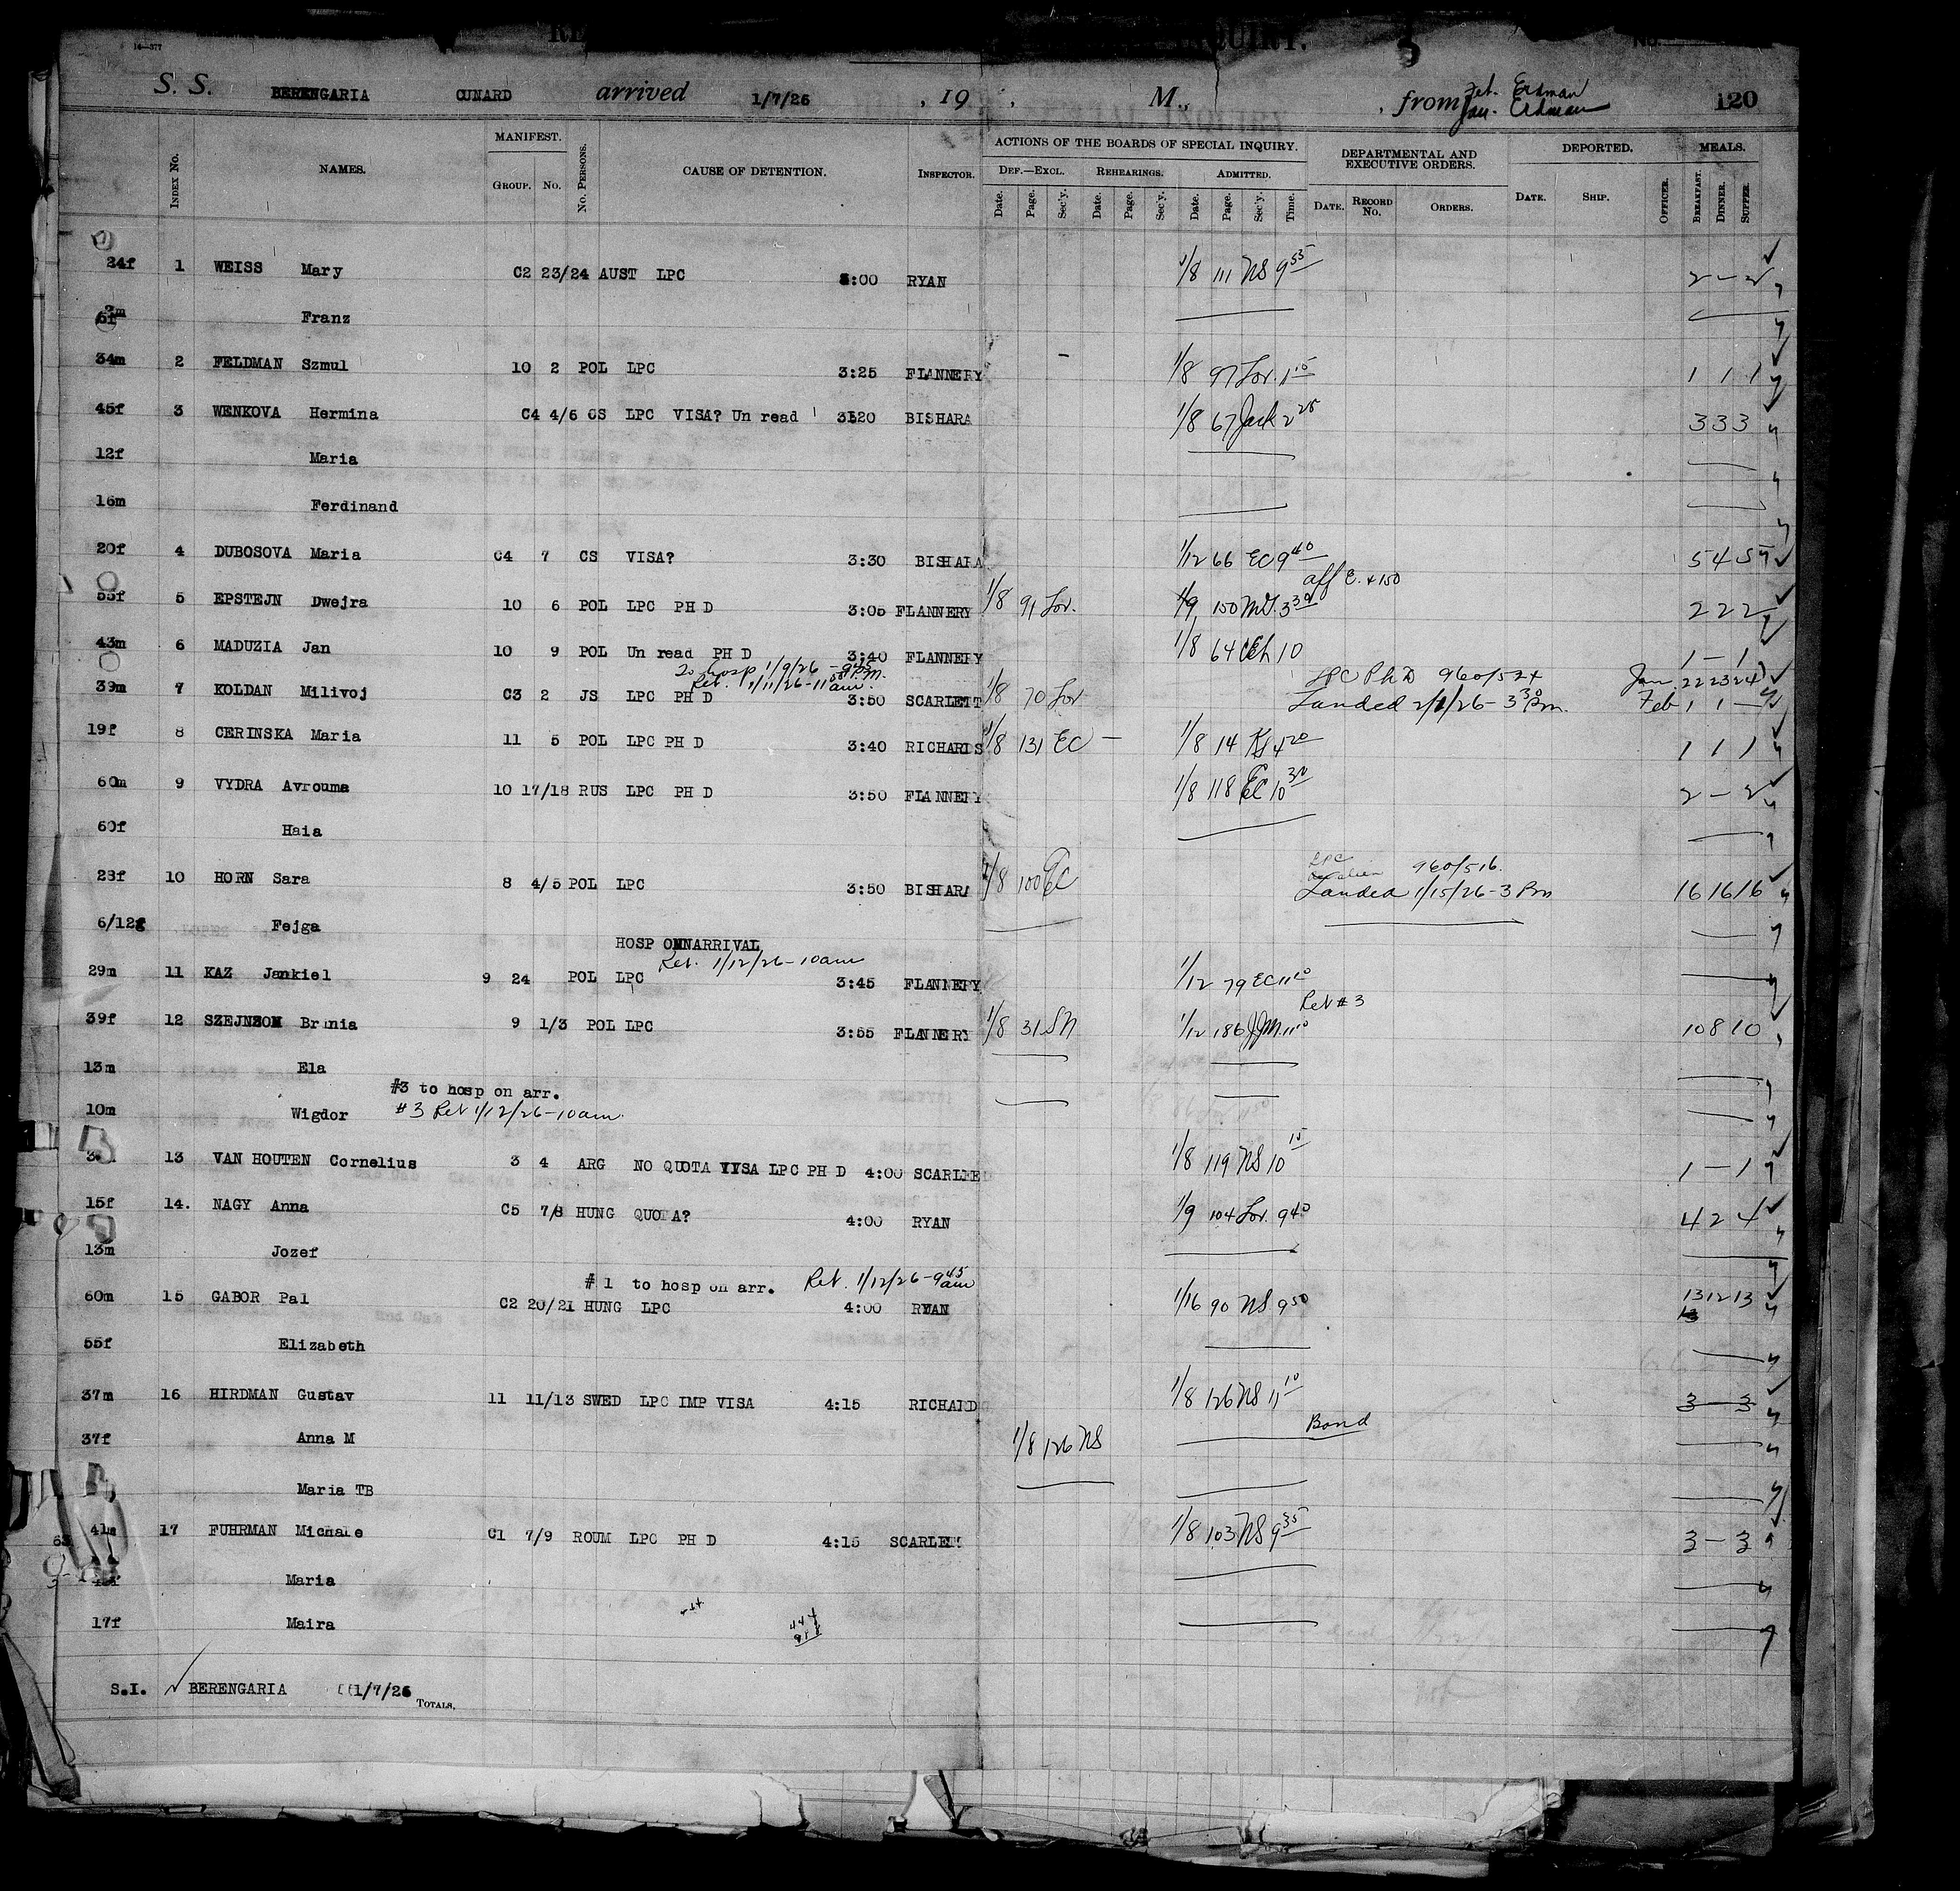 16—377
INQUIRY.
S. S. BERENGARIA CUNARD arrived 1/7/26 , 19 , M., , from Erdman 120
Erdman
MANIFEST.
ACTIONS OF THE BOARDS OF SPECIAL INQUIRY.
DEPARTMENTAL AND EXECUTIVE ORDERS.
DEPORTED.
MEALS.
Index No. NAMES. Group. No. No. Persons. CAUSE OF DETENTION. Inspector.
Def.—Excl. Rehearings. Admitted.
Date. Page. Sec'y. Date. Page. Sec'y. Date. Page. Sec'y. Time. Date. Record No. Orders. Date. Ship. Officer. Breakfast. Dinner. Supper.
24f 1 WEISS Mary C2 23/24 AUST LPC :00 RYAN 1/8 111 NS 9 55 2 — 2
Franz
34m 2 FELDMAN Szmul 10 2 POL LPC 3:25 FLANNERY 1/8 97 Lov. 1 15 1 1 1
45f 3 WENKOVA Hermina C4 4/6 CS LPC VISA? Un read BISHARA 1/8 67 Jack 2 25 3 3 3
12f Maria
16m Ferdinand
20f 4 DUBOSOVA Maria C4 7 CS VISA? 3:30 BISHARA 1/12 66 EC 9 40 5 4 5
55f 5 EPSTEJN Dwejra 10 6 POL LPC PH D 3:05 FLANNERY 1/8 91 Lov. 1/9 150 3 30 2 2 2
43m 6 MADUZIA Jan 10 9 POL Un read PH D 3:40 FLANNERY 1/8 64 10 1 — 1
To hosp 1/9/26 – 9 45 P.M.
Ret. 1/11/26 – 11 am.
39m 7 KOLDAN Milivoj C3 2 JS LPC PH D 3:50 SCARLETT 1/8 70 Lov LPC Ph D 960/524 Jan 22 23 24
Landed 2/1/26 – 3 30 Pm. Feb 1 1 —
19f 8 CERINSKA Maria 11 5 POL LPC PH D 3:40 RICHARDS 1/8 131 EC — 1/8 14 4 20 1 1 1
60m 9 VYDRA Avrouma 10 17/18 RUS LPC PH D 3:50 FLANNERY 1/8 118 EC 10 30 2 — 2
60f Haia
28f 10 HORN Sara 8 4/5 POL LPC 3:50 BISHARA 1/8 100 EC LPC 960/516.
Landed 1/15/26 – 3 Pm 16 16 16
6/12f Fejga
HOSP ON ARRIVAL
Ret. 1/12/26 – 10 am
29m 11 KAZ Jankiel 9 24 POL LPC 3:45 FLANNERY 1/12 79 EC 11 20
Ret # 3
39f 12 SZEJNZON Brinia 9 1/3 POL LPC 3:55 FLANNERY 1/8 31 SN 1/12 186 JJM 11 10 10 8 10
13m Ela
#3 to hosp on arr.
10m Wigdor #3 Ret 1/12/26 – 10 am.
13 VAN HOUTEN Cornelius 3 4 ARG NO QUOTA VISA LPC PH D 4:00 SCARLE 1/8 119 NS 10 15 1 — 1
15f 14. NAGY Anna C5 7/8 HUNG QUOTA? 4:00 RYAN 1/9 104 Lov. 9 40 4 2 4
13m Jozef
# 1 to hosp on arr. Ret. 1/12/26 – 9 45 am
60m 15 GABOR Pal C2 20/21 HUNG LPC 4:00 RYAN 1/16 90 NS 9 50 13 12 13
55f Elizabeth
37m 16 HIRDMAN Gustav 11 11/13 SWED LPC IMP VISA 4:15 RICHARD 1/8 126 NS 11 10 3 — 3
37f Anna M 1/8 126 NS Bond
Maria TB
41m 17 FUHRMAN Michale C1 7/9 ROUM LPC PH D 4:15 SCARLETT 1/8 103 NS 9 35 3 — 3
Maria
17f Maira
S.I. BERENGARIA 1/7/26 Totals.